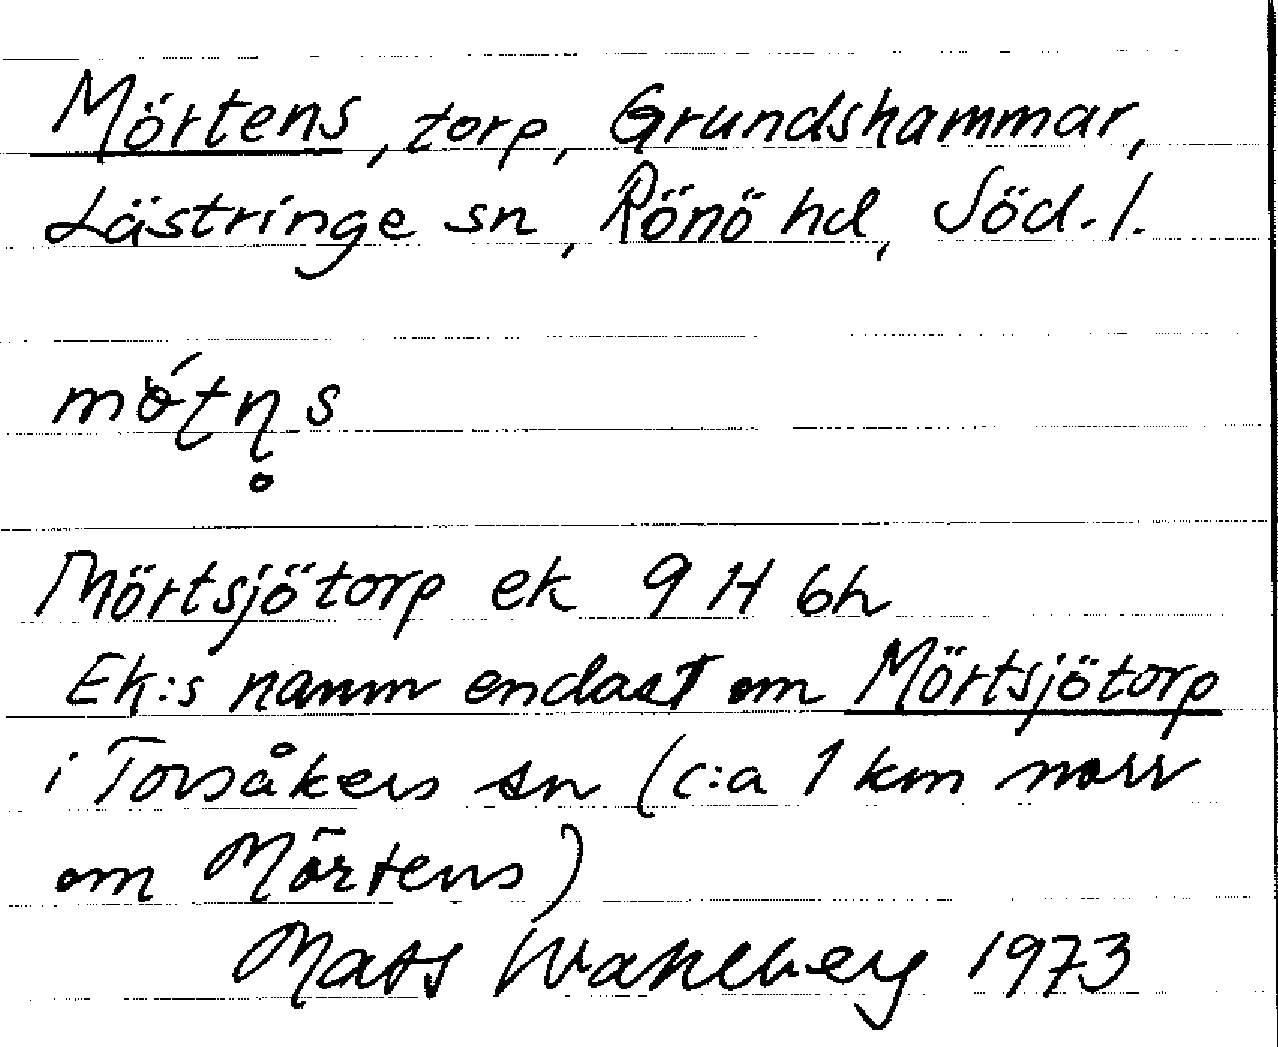 Mörtens, torp, Grundshammar,
Lästringe sn, Rönö hd, Söd. l.
mö́ʈɳ̥s
Mörtsjötorp ek 9 H 6h
Ek:s namn endast om Mörtsjötorp
i Torsåkers sn (c:a 1 km norr
om Mörtens)
Mats Wahlberg 1973